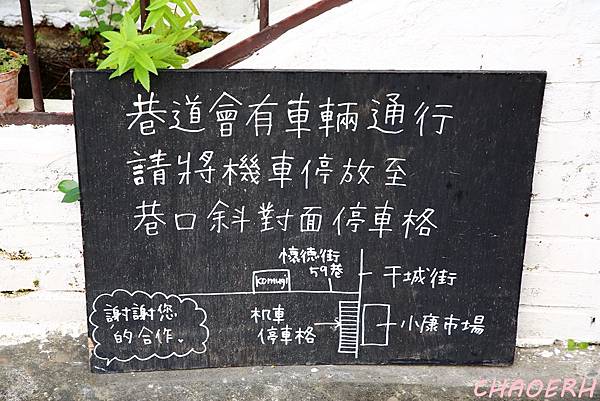 巷道會有車輛通行
請將機車停放至
巷口斜對面停車格
懷德街
59巷
komugi
干城街
謝謝您
的合作。
机車
停車格
小康市場
CHAOERH